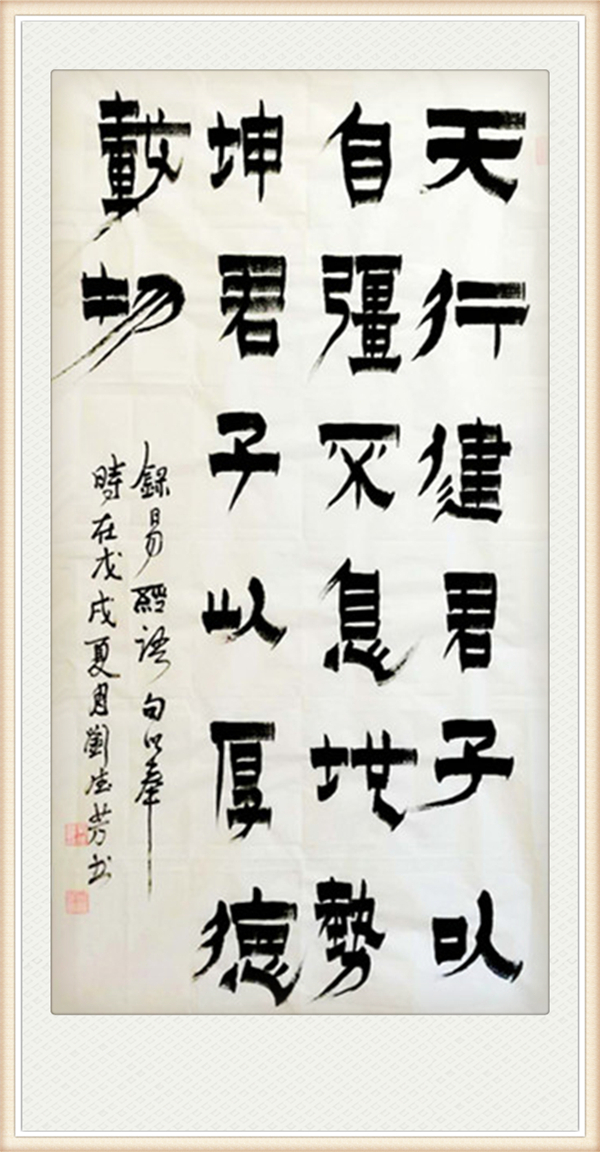 天行健君子以
自彊不息地勢
坤君子以厚德
載物
錄易經語句以奉
時在戊戌夏月劉德芳书